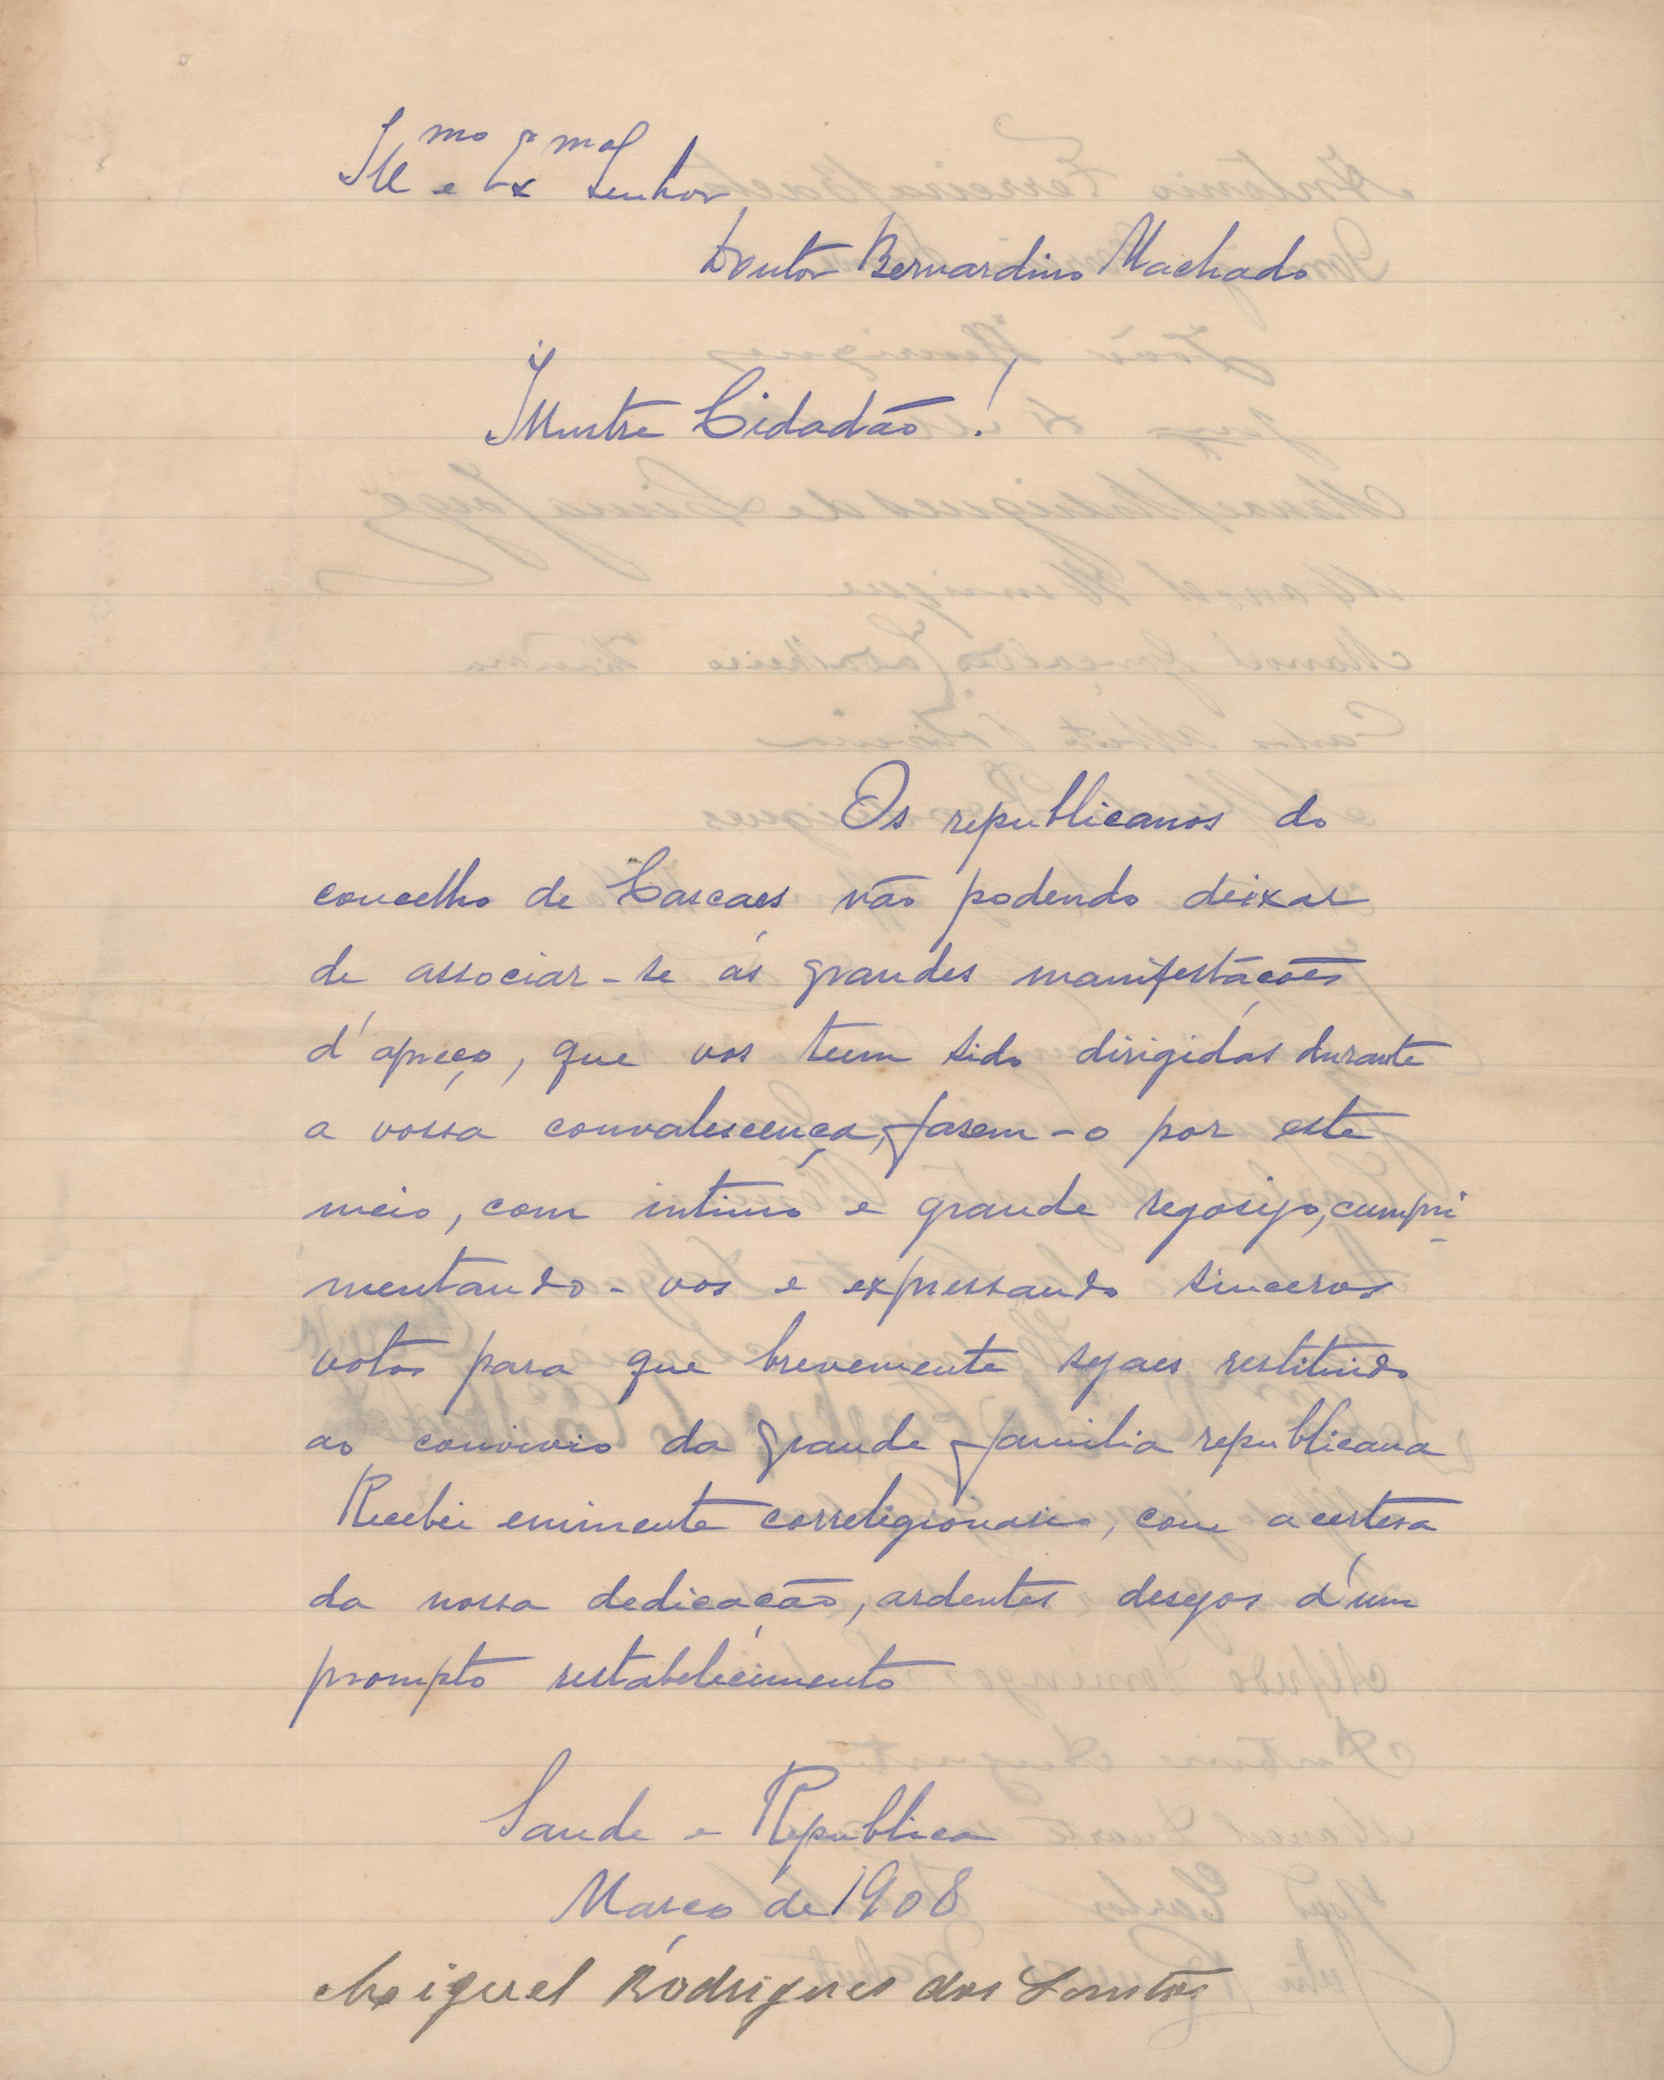 Ill.mo e Ex.mo Senhor
Doutor Bernardino Machado
Illustre Cidadão!
Os republicanos do
concelho de Cascaes não podendo deixar
de associar-se ás grandes manifestações
d'apreço, que vos teem sido dirigidas durante
a vossa convalescença, fasem-o por este
meio, com intimo e grande regosijo, cumpri-
mentando-vos e expressando sinceros
votos para que brevemente sejaes restituido
ao convivio da grande familia republicana
Recebei eminente correligionario, com a certesa
da nossa dedicação, ardentes desejos d'um
prompto restabelecimento
Saude e Republica
Março de 1908
Miguel Rodrigues dos Santos